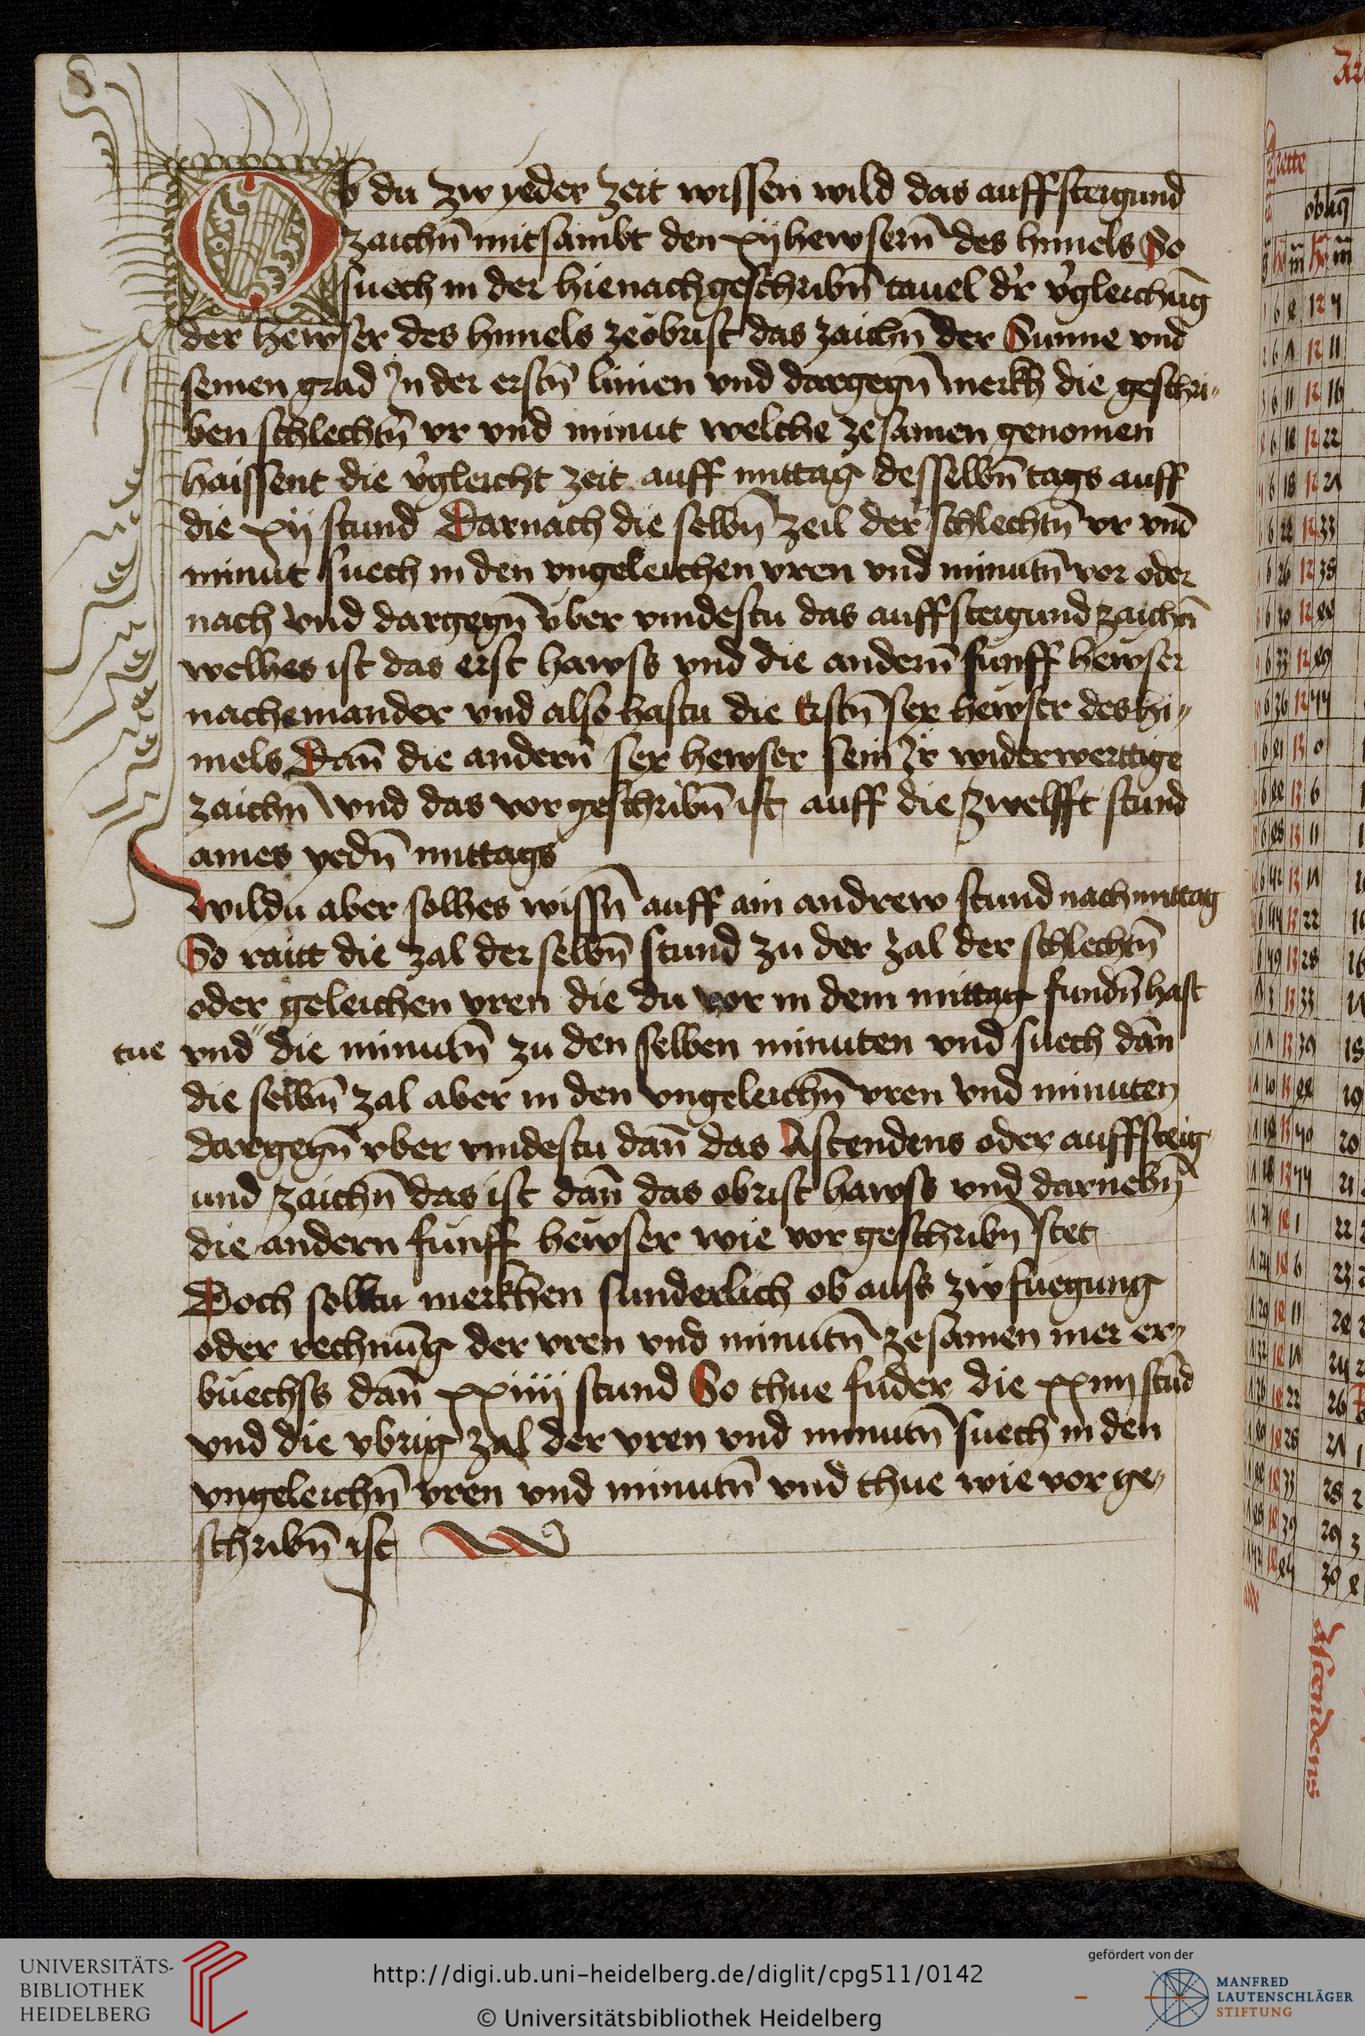 Ob du zw yeder zeit wissen wild das auffsteigund
zaichn̄ mitsambt den xij hewsern̄ des himels So
suech in der hienachgeschribn̄ tauel d'r v'gleichūg
der hewser des himels zeobrist das zaichn̄ der Sunne vnd
seinen grad In der erstn̄ linien vnd dargegn̄ merkh die geschri-
ben schlechtn̄ vr vnd minut welche zesamen genomen
haissent die v'gleicht zeit auff mittag desselbn̄ tags auff
die xij stund Darnach die selbn̄ zeil der schlechtn̄ vr vnd
minut suech in den vngeleichen vren vnd minutn̄ vor oder
nach vnd dargegn̄ vber vindestu das auffsteigund zaichn̄
welhes ist das erst hawss vnd die andern̄ funff hewser
nacheinander vnd also hastu die Erstn̄ sex hewser des hi-
mels Dan̄ die andern̄ sex hewser sein Ir widerwerttige
zaichn̄ vnd das vorgeschribn̄ ist auff die zwelfft stund
aines yedn̄ mittags
Wildu aber solhes wissn̄ auff ain andrew stund nachmittag
So raitt die zal der selbn̄ stund zu der zal der schlechtn̄
oder geleichen vren die du vor in dem mittag fundn̄ hast
tue vnd " die minutn̄ zu den selben minuten vnd suech dan̄
die selbn̄ zal aber in den vngeleichn̄ vren vnd minuten
dargegn̄ vber vindestu dan̄ das Ascendens oder auffsteig
und zaichn̄ das ist dan̄ das obrist hawss vnd darnebn̄
die andern funff hewser wie vor geschribn̄ stet
Doch soltu merkhen sunderlich ob auss zwfuegung
oder rechnūg der vren vnd minutn̄ zesamen mer er-
buechss dan̄ xxiiij stund So thue fuder die xxiiij stūd
vnd die vbrig zal der vren vnd minutn̄ suech in den
vngeleichn̄ vren vnd minutn̄ vnd thue wie vor ge-
schribn̄ ist
ascendens
UNIVERSITÄTS-
BIBLIOTHEK
HEIDELBERG
http://digi.ub.uni-heidelberg.de/diglit/cpg511/0142
© Universitätsbibliothek Heidelberg
gefördert von der
MANFRED
LAUTENSCHLÄGER
STIFTUNG